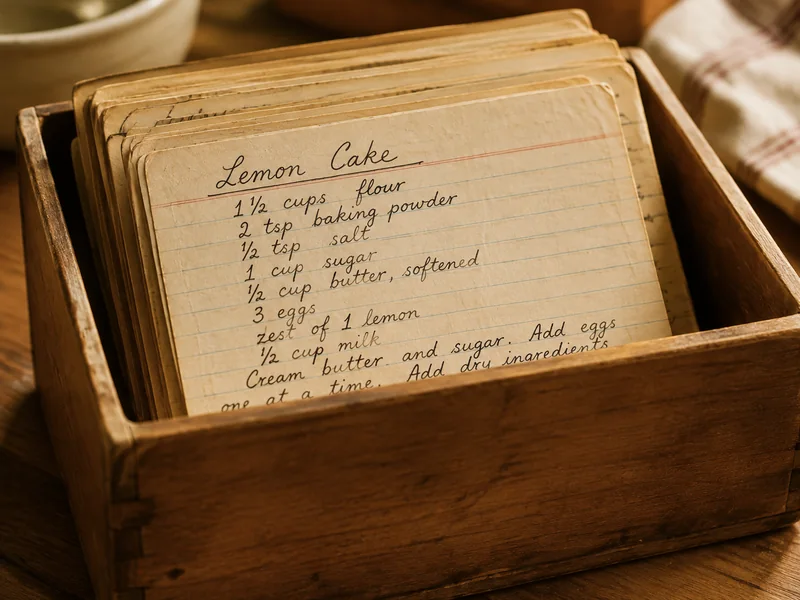 Lemon Cake
1 ½ cups flour
2 tsp baking powder
½ tsp salt
1 cup sugar
½ cup butter, softened
3 eggs
zest of 1 lemon
½ cup milk
Cream butter and sugar. Add eggs
one at a time. Add dry ingredients